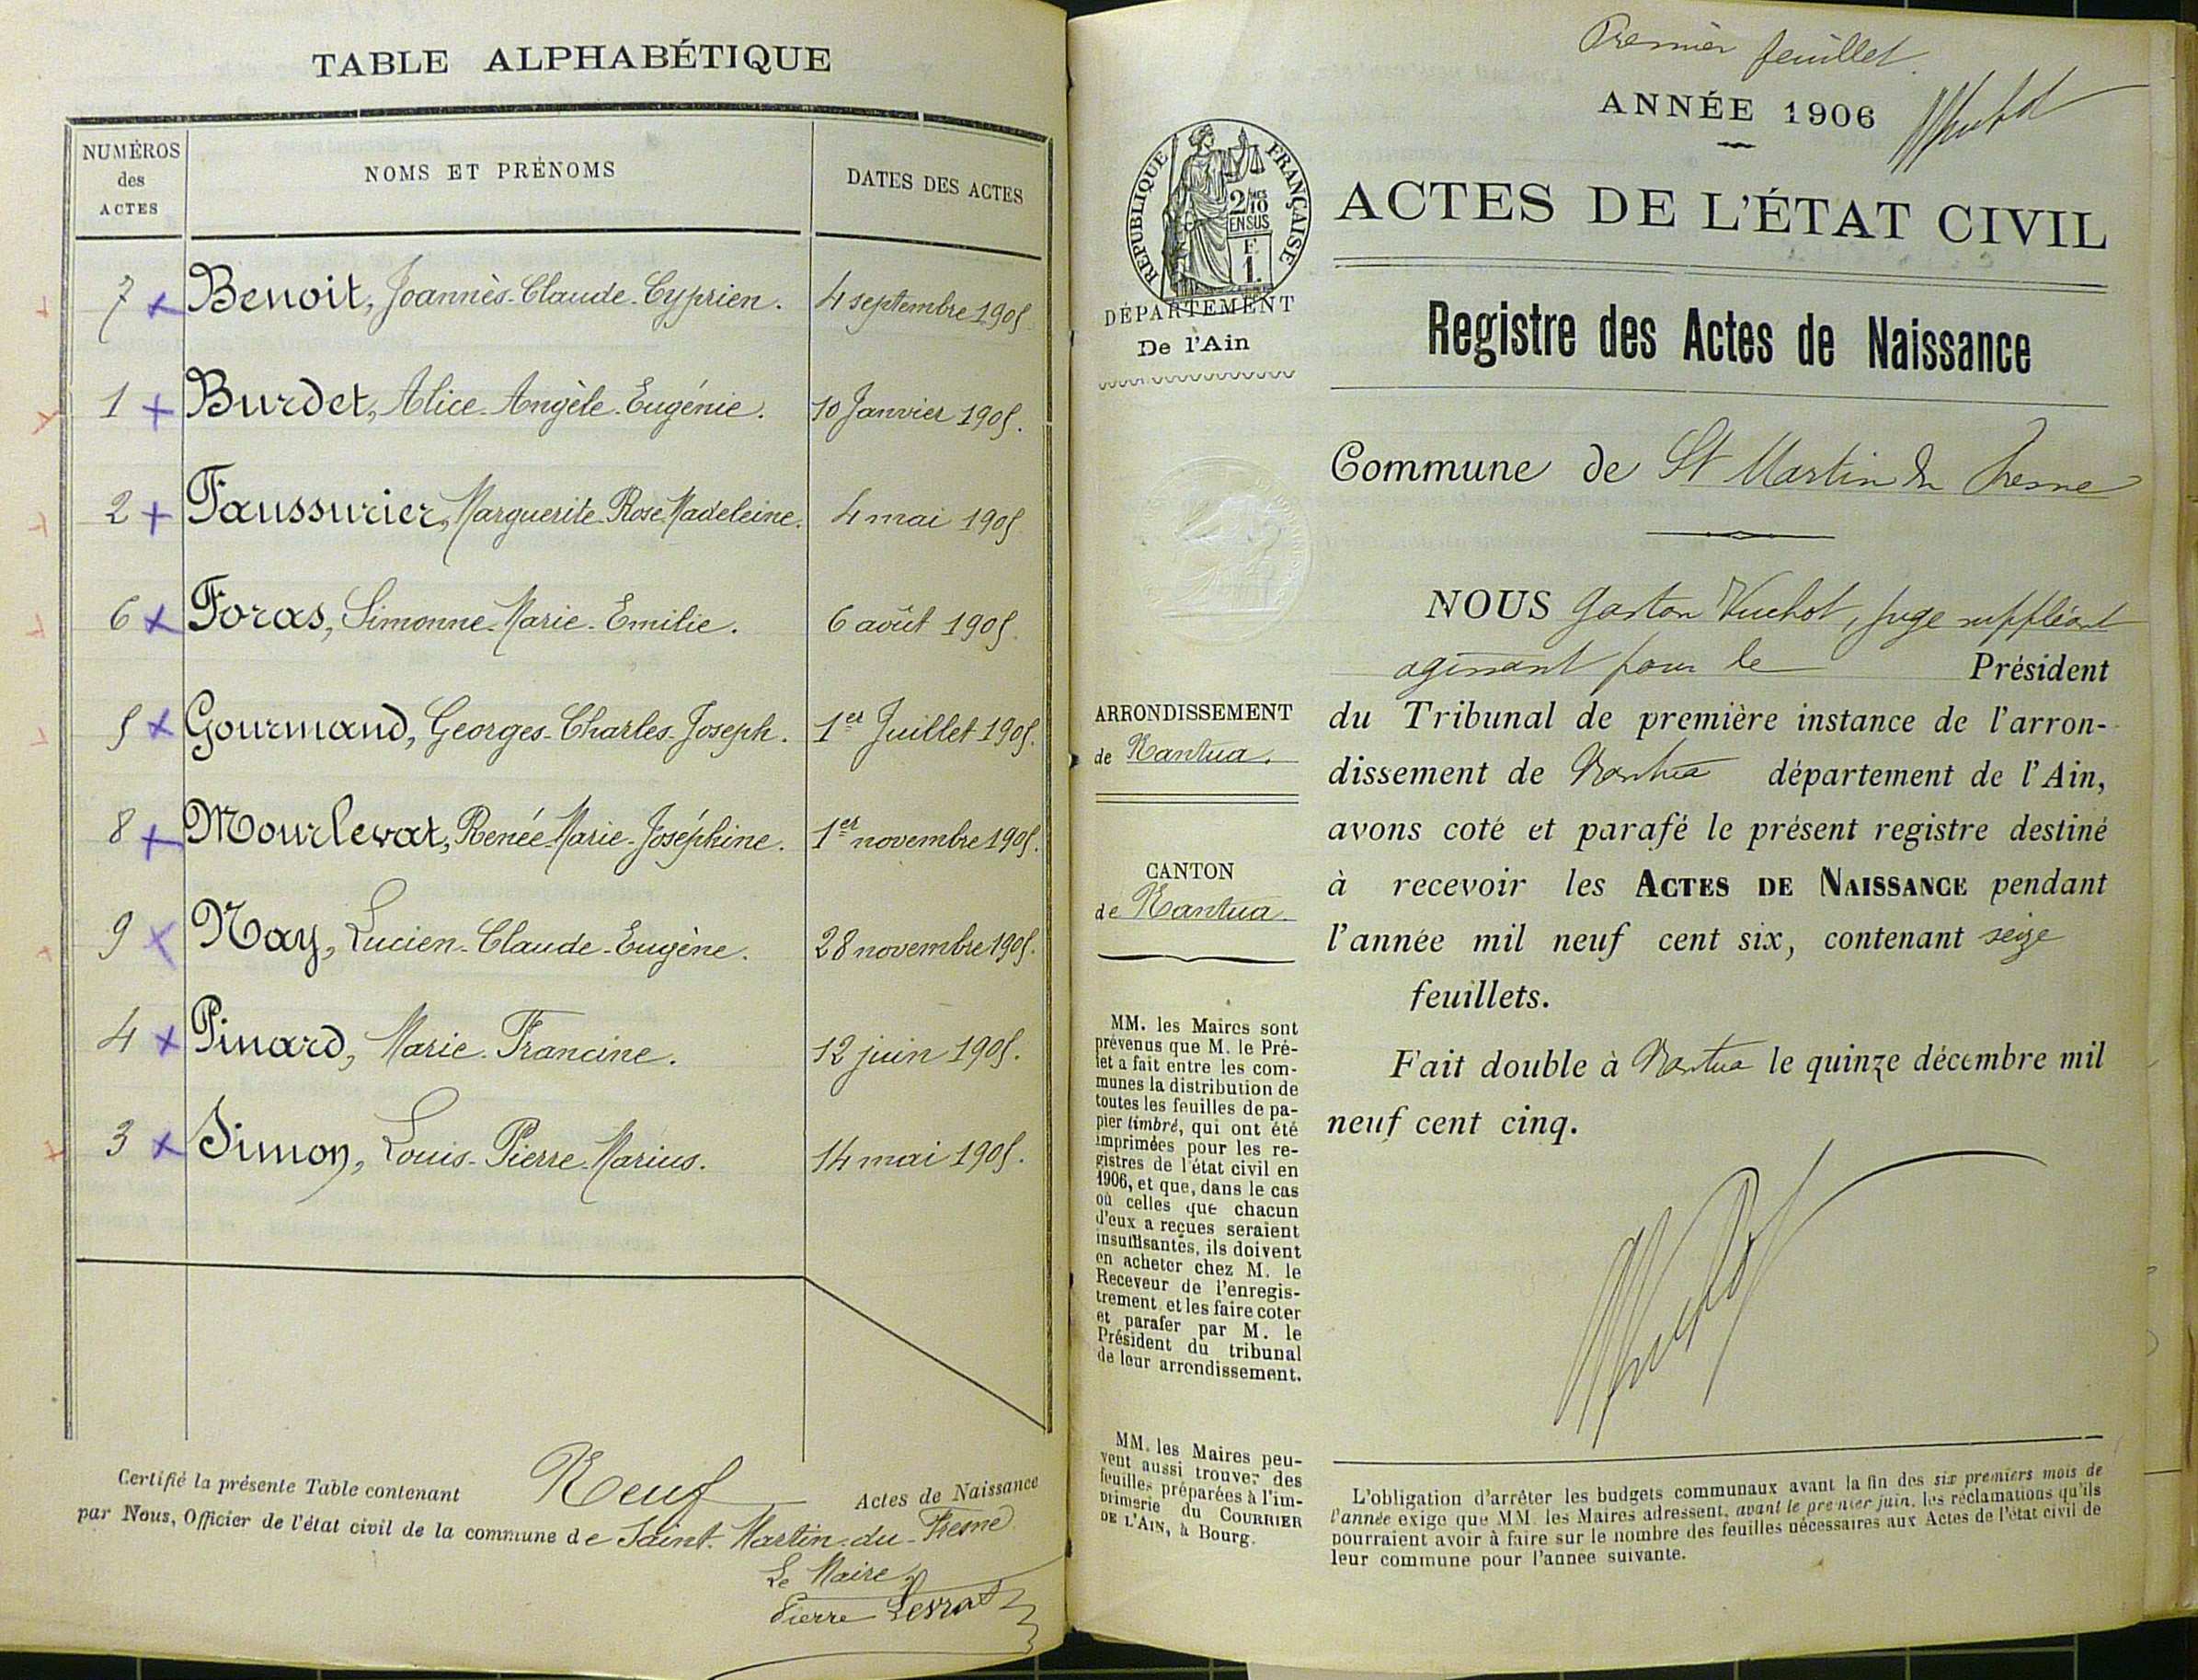 TABLE ALPHABÉTIQUE
NUMÉROS des ACTES
NOMS ET PRÉNOMS
DATES DES ACTES
7 Benoit, Joannès-Claude-Cyprien. 4 septembre 1905
1 Burdet, Alice-Angèle-Eugénie. 10 Janvier 1905.
2 Faussurier, Marguerite-Rose-Madeleine. 4 mai 1905
6 Foras, Simonne-Marie-Emilie. 6 août 1905
5 Gourmand, Georges-Charles-Joseph. 1er Juillet 1905.
8 Mourlevat, Renée-Marie-Joséphine. 1er novembre 1905.
9 Nay, Lucien-Claude-Eugène. 28 novembre 1905.
4 Pinard, Marie-Francine. 12 juin 1905.
3 Simon, Louis-Pierre-Marius. 14 mai 1905.
Certifié la présente Table contenant Neuf Actes de Naissance
par Nous, Officier de l'état civil de la commune de Saint-Martin-du-Fresne
Le Maire
Pierre Levrat
Premier feuillet.
ANNÉE 1906
RÉPUBLIQUE FRANÇAISE
2/10 MES
EN SUS
F
1.
ACTES DE L'ÉTAT CIVIL
DÉPARTEMENT
De l'Ain
Registre des Actes de Naissance
Commune de St Martin du Fresne
NOUS Gaston Vuchot, juge suppléant
agissant pour le Président
ARRONDISSEMENT
de Nantua.
du Tribunal de première instance de l'arron-
dissement de Nantua département de l'Ain,
avons coté et parafé le présent registre destiné
CANTON
de Nantua.
à recevoir les ACTES DE NAISSANCE pendant
l'année mil neuf cent six, contenant seize
feuillets.
Fait double à Nantua le quinze décembre mil
neuf cent cinq.
MM. les Maires sont
prévenus que M. le Pré-
fet a fait entre les com-
munes la distribution de
toutes les feuilles de pa-
pier timbré, qui ont été
imprimées pour les re-
gistres de l'état civil en
1906, et que, dans le cas
où celles que chacun
d'eux a reçues seraient
insuffisantes, ils doivent
en acheter chez M. le
Receveur de l'enregis-
trement et les faire coter
et parafer par M. le
Président du tribunal
de leur arrondissement.
MM. les Maires peu-
vent aussi trouver des
feuilles préparées à l'im-
primerie du COURRIER
DE L'AIN, à Bourg.
L'obligation d'arrêter les budgets communaux avant la fin des six premiers mois de
l'année exige que MM. les Maires adressent, avant le premier juin, les réclamations qu'ils
pourraient avoir à faire sur le nombre des feuilles nécessaires aux Actes de l'état civil de
leur commune pour l'année suivante.